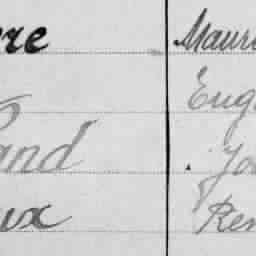 ere Mauri
Eug
and Jo
ux Ren